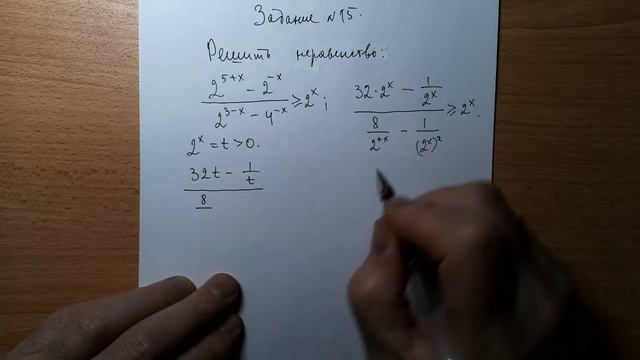 Задание №15.
Решить неравенство:
(2^(5+x) - 2^(-x))/(2^(3-x) - 4^(-x)) ≥ 2^x; (32·2^x - 1/2^x)/(8/2^(+x) - 1/(2^x)^2) ≥ 2^x.
2^x = t > 0.
32t - 1/t
8